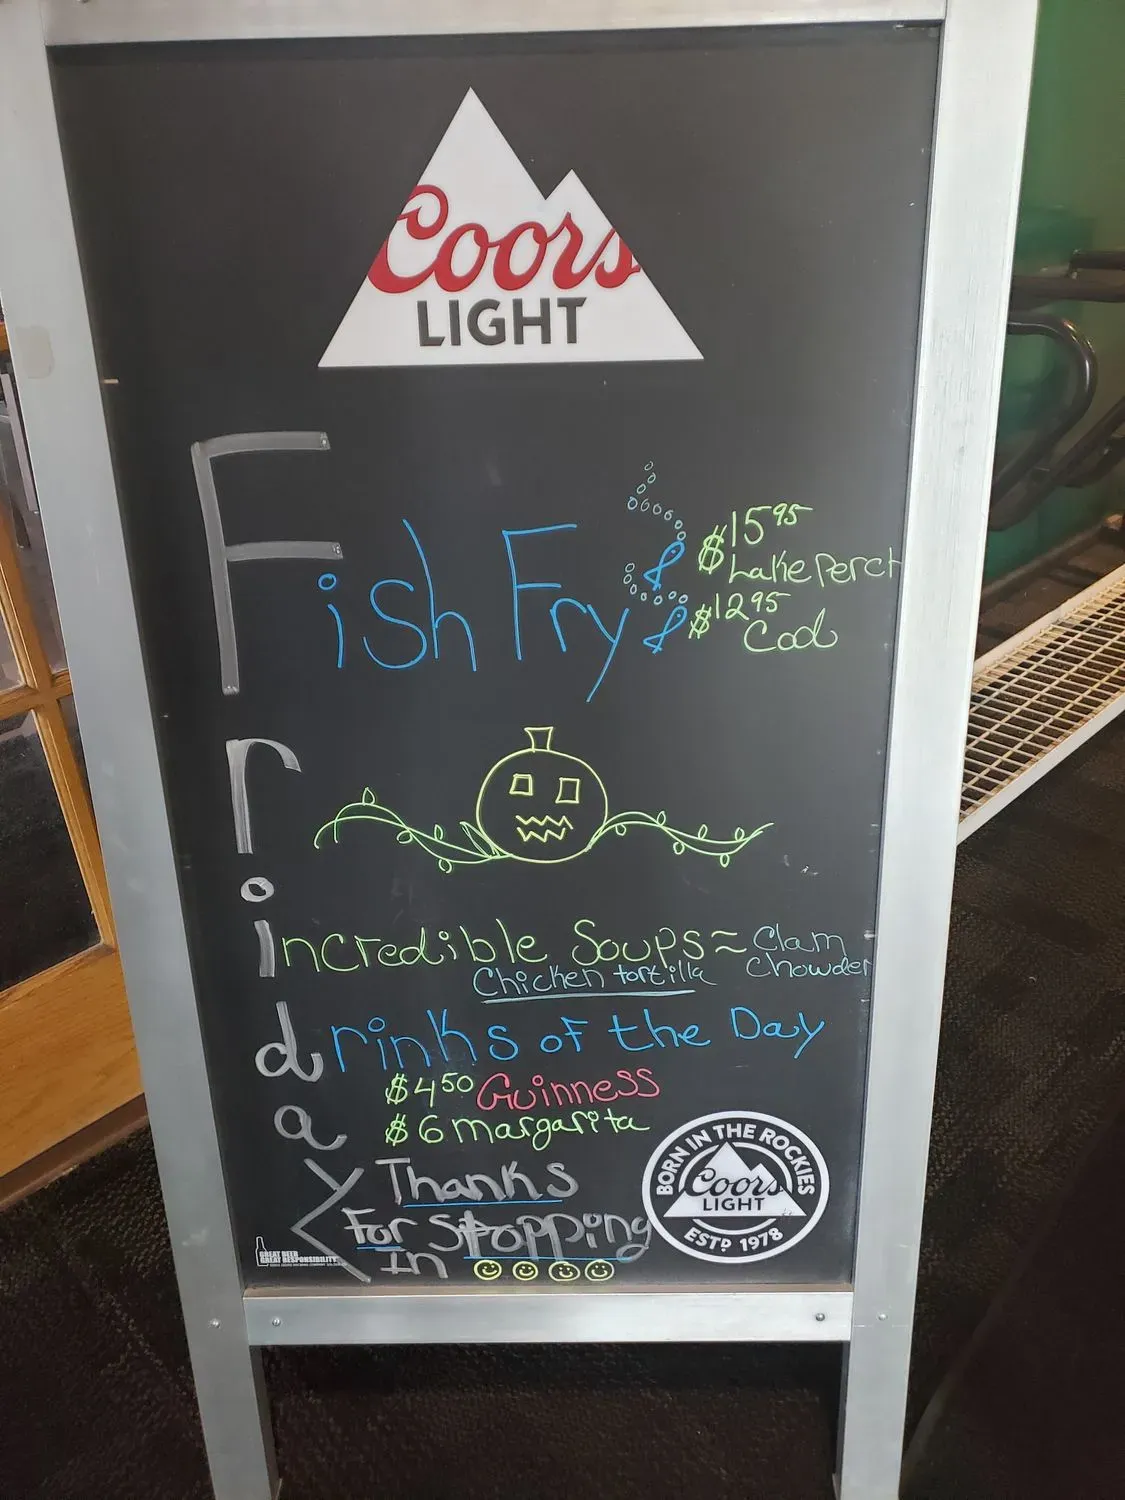 Coors
LIGHT
Friday
Fish Fry
$15.95
Lake Perch
$12.95
Cod
Incredible Soups ≈ Clam
Chowder
Chicken tortilla
drinks of the Day
$4.50 Guinness
$6 margarita
Thanks
For Stopping
In
BORN IN THE ROCKIES
Coors
LIGHT
ESTD 1978
GREAT BEER
GREAT RESPONSIBILITY